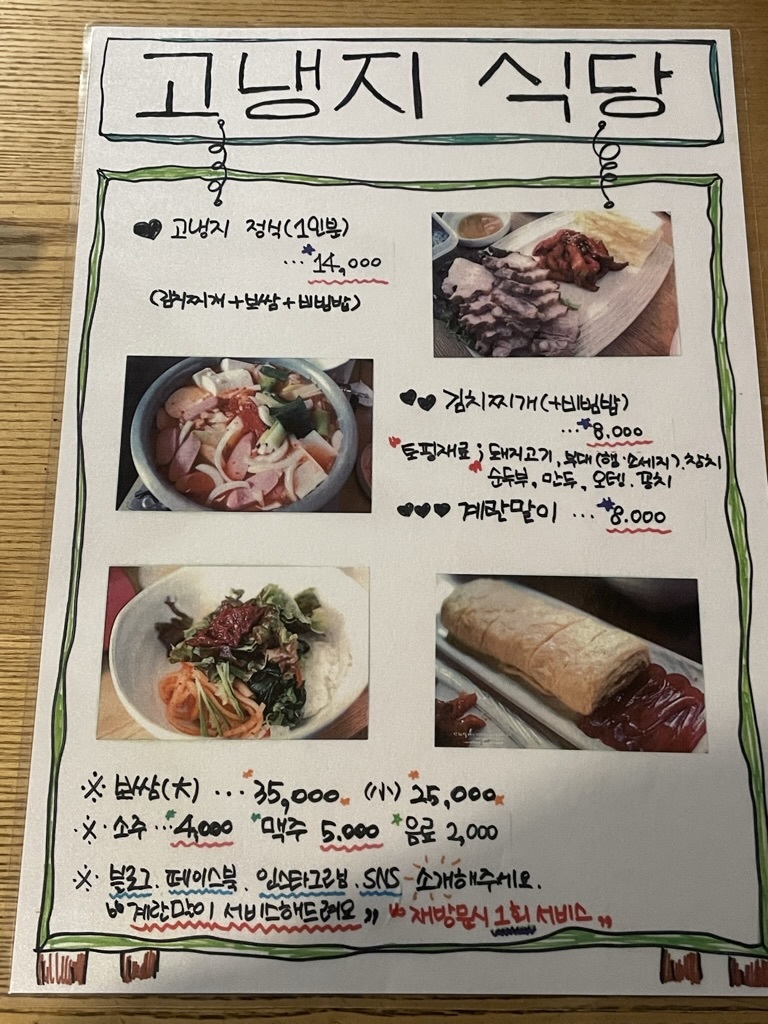 고냉지 식당
♥♥ 고냉지 정식(1인분)
... 14,000
(김치찌개+보쌈+비빔밥)
♥♥ 김치찌개(+비빔밥)
... 8.000
토핑재료 ; 돼지고기, 부대(햄·소세지).참치
순두부, 만두, 오뎅. 꽁치
♥♥♥ 계란말이 ... 8.000
※ 보쌈(大) ... 35,000 (小) 25,000
※ 소주 ... 4,000 맥주 5.000 음료 2,000
※ 블로그. 페이스북. 인스타그램. SNS 소개해주세요.
"계란말이 서비스해드려요" "재방문시 1회 서비스"